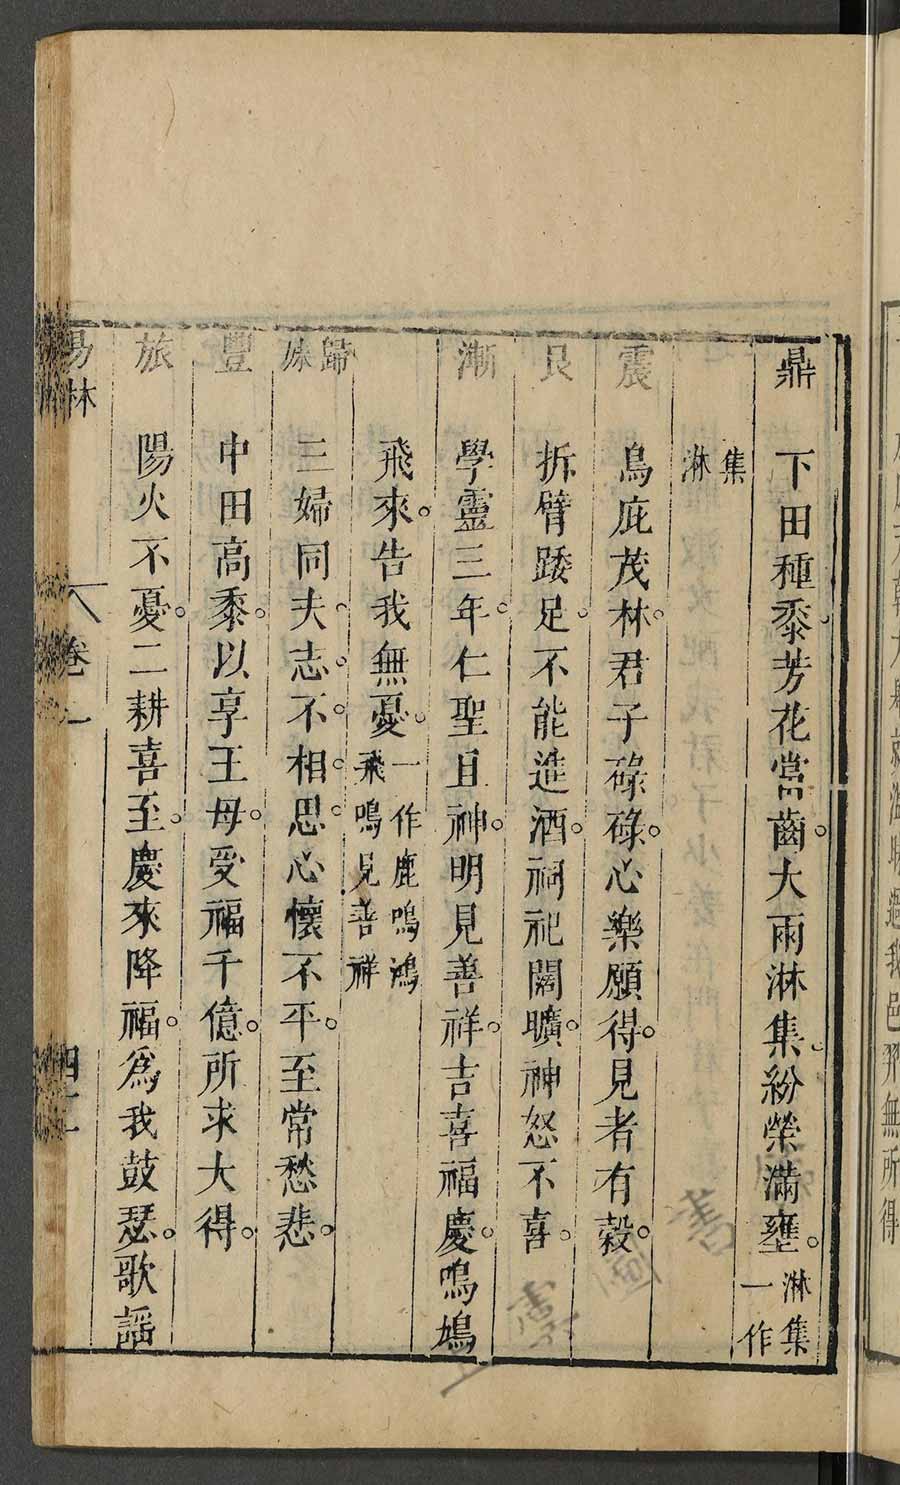 鼎 下田種黍芳花當齒大雨淋集紛榮滿甕 淋集一作
集淋
震 鳥庇茂林君子碌碌心樂願得見者有穀
艮 拆臂踒足不能進酒祠祀闊曠神怒不喜
漸 學靈三年仁聖且神明見善祥吉喜福慶鳴鳩
飛來告我無憂 一作鹿鳴鴻飛鳴見善祥
歸妹 三婦同夫志不相思心懷不平至常愁悲
豐 中田高黍以享王母受福千億所求大得
旅 陽火不憂二耕喜至慶來降福為我鼓瑟歌謡
易林 卷一